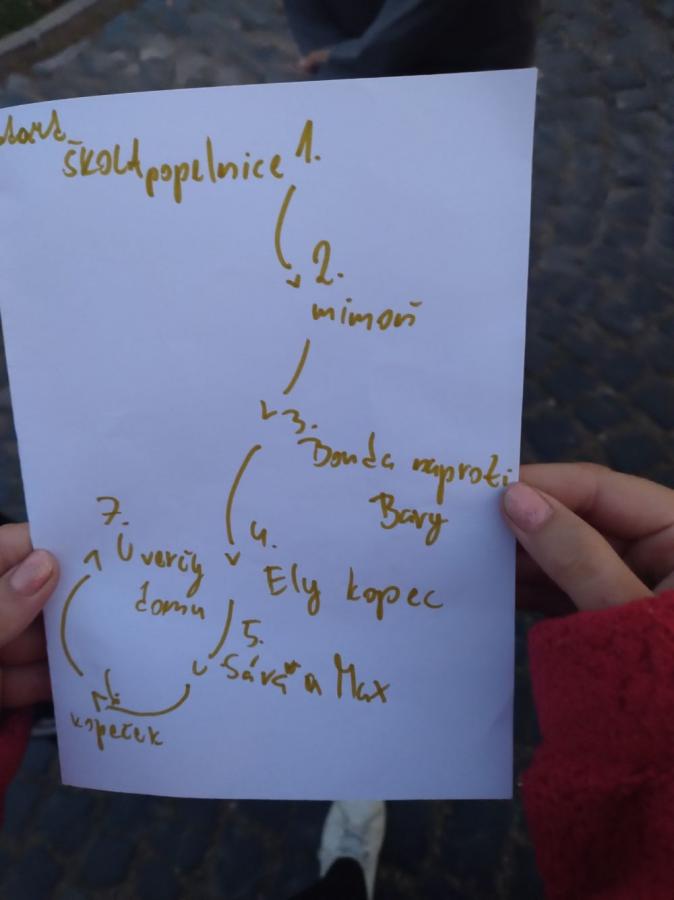 start
ŠKOLA popelnice 1.
2.
mimoň
3.
Bouda naproti
Báry
4.
Ely kopec
5.
Sára a Max
6.
kopeček
7.
U verčy
domu